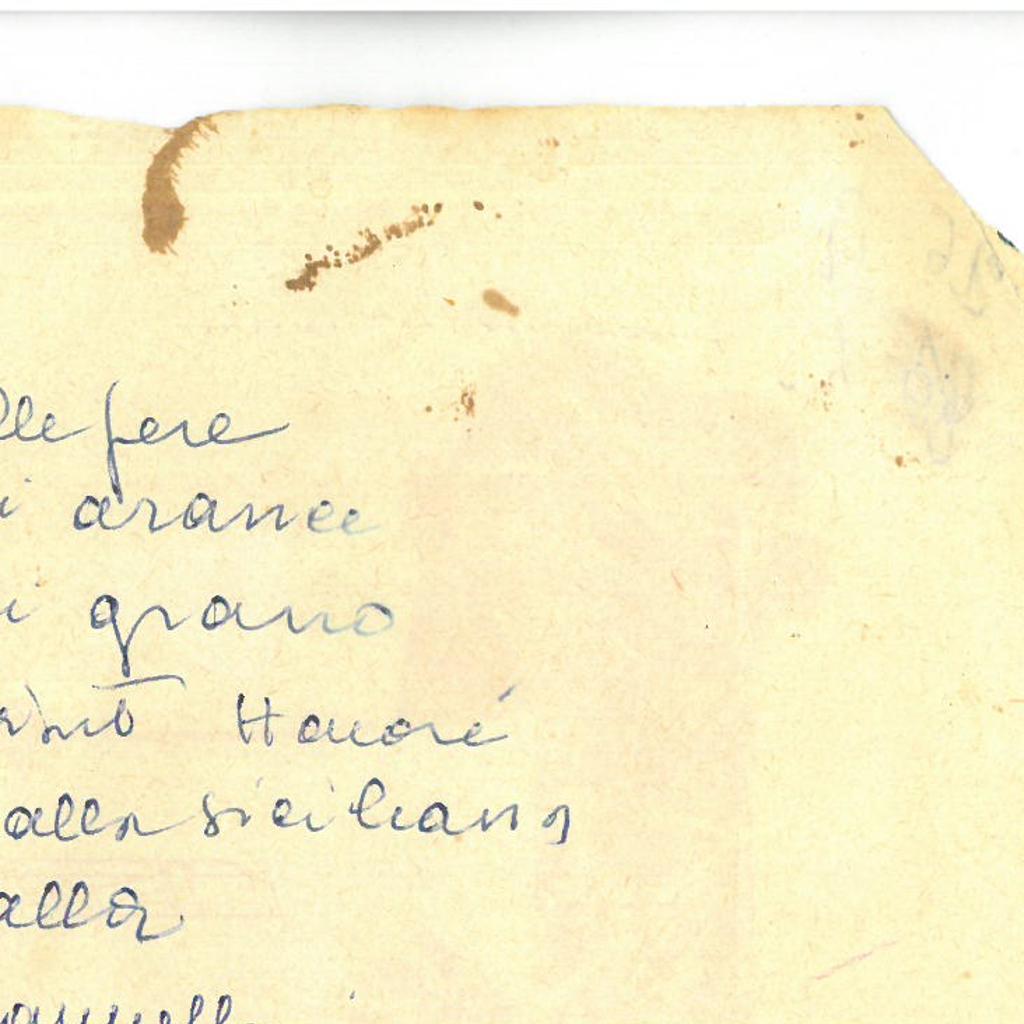 lle pere
i arance
i grano
Honoré
alla siciliana
alla